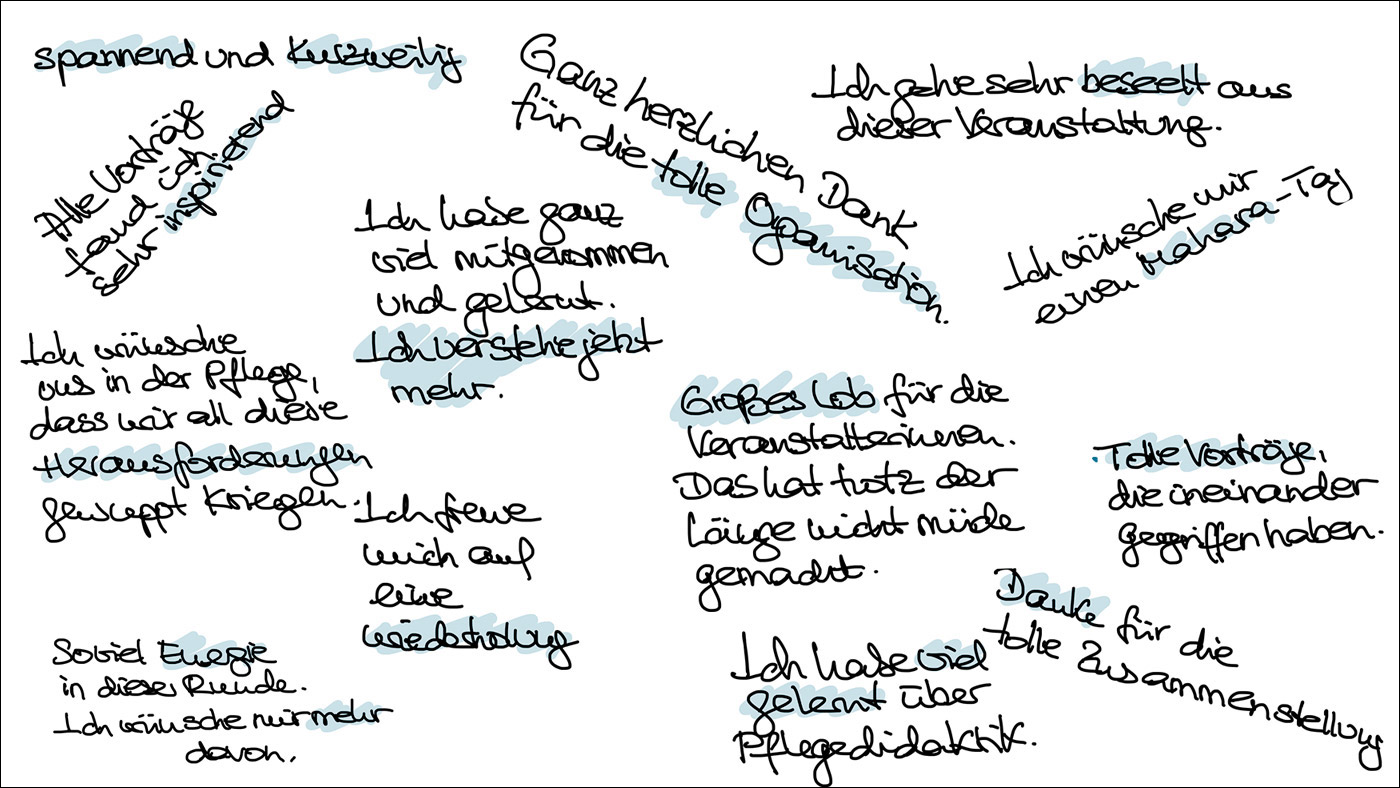 spannend und kurzweilig
Alle Vorträge
fand ich
sehr inspirierend
Ganz herzlichen Dank
für die tolle Organisation.
Ich gehe sehr beseelt aus
dieser Veranstaltung.
Ich habe ganz
viel mitgenommen
und gelernt.
Ich verstehe jetzt
mehr.
Ich wünsche mir
einen Mahara-Tag
Ich wünsche
uns in der Pflege,
dass wir all diese
Herausforderungen
gewuppt kriegen.
Großes Lob für die
Veranstalterinnen.
Das hat trotz der
Länge nicht müde
gemacht.
Tolle Vorträge,
die ineinander
gegriffen haben.
Ich freue
mich auf
eine
Wiederholung
Danke für die
tolle Zusammenstellung
Soviel Energie
in dieser Runde.
Ich wünsche mir mehr
davon.
Ich habe viel
gelernt über
Pflegedidaktik.